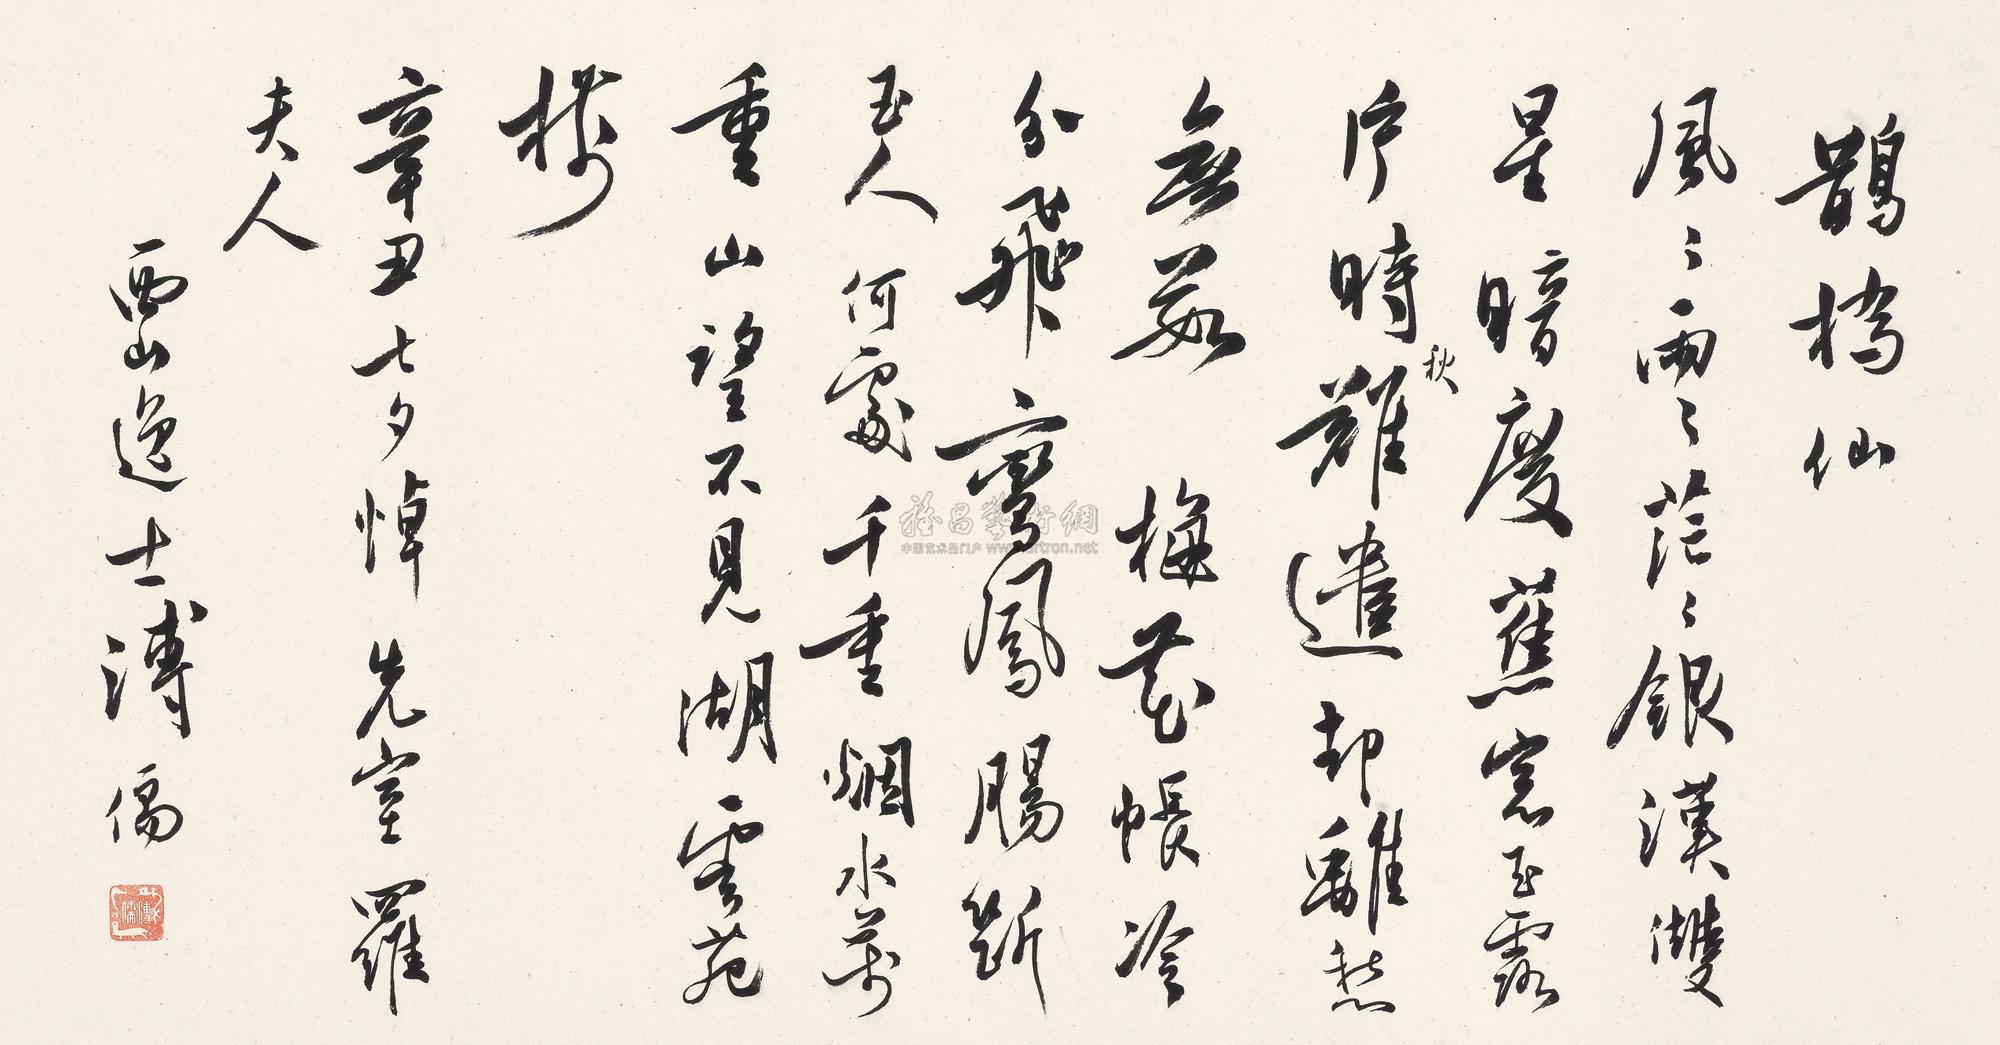 鵲橋仙
風〻雨〻茫〻銀漢雙
星暗度蕉窓玉露
片時秋難遣却離愁
無數 梅花帳冷
分飛鸞鳳腸斷
玉人何處千重烟水萬
重山望不見湖雲苑
樹
辛丑七夕悼先室羅
夫人
西山逸士溥儒
溥儒
雅昌藝術網
中国艺术品门户 www.artron.net